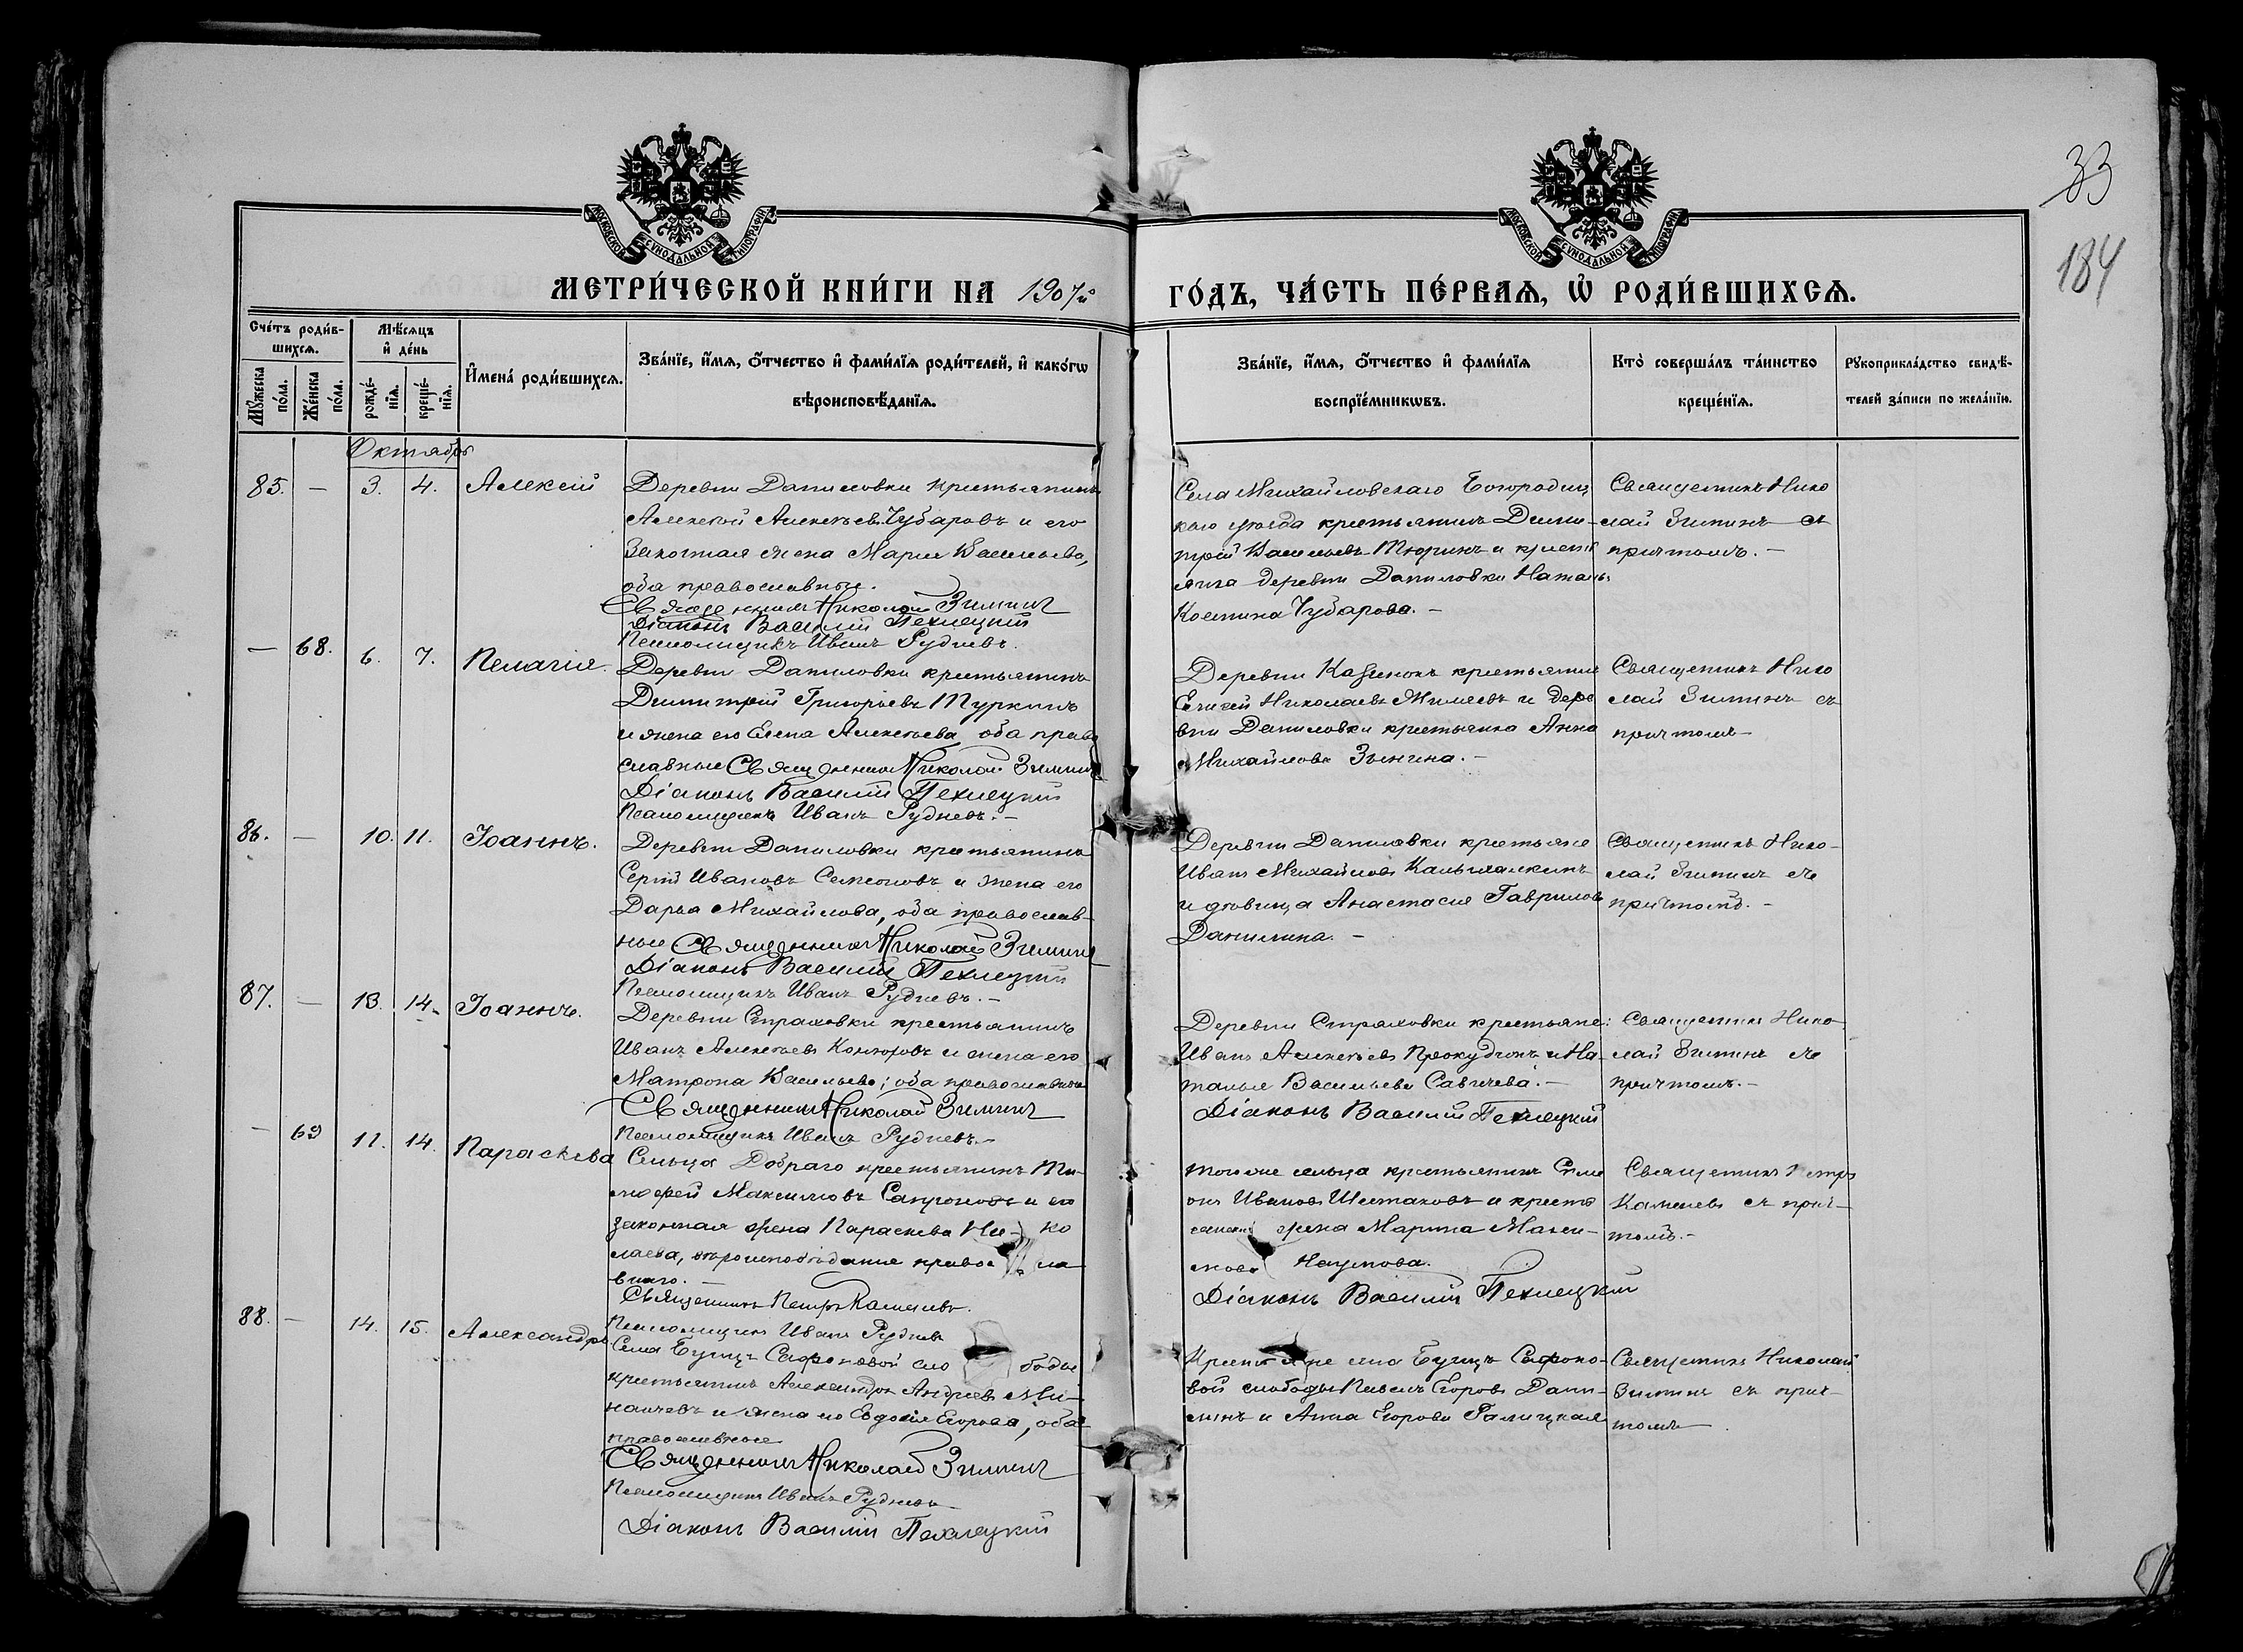 33
184
МОСКОВСКОЙ СѴНОДАЛЬНОЙ ТИПОГРАФІИ
МОСКОВСКОЙ СѴНОДАЛЬНОЙ ТИПОГРАФІИ
МЕТРИ́ЧЕСКОЙ КНИ́ГИ НА 1907й
ГО́ДЪ, ЧА́СТЬ ПЕ́РВАѦ, Ѽ РОДИ́ВШИХСѦ.
Сче́тъ роди́в-
шихсѧ.
Мѣ́сѧцъ
и҆ де́нь
Мꙋ́жеска по́ла.
Же́нска по́ла.
рожде́-
нїѧ.
креще́-
нїѧ.
И҆мена̀ роди́вшихсѧ.
Зва́нїе, и҆́мѧ, ѻ҆́тчество и҆ фами́лїѧ роди́телей, и҆ како́гѡ
вѣроисповѣ́данїѧ.
Зва́нїе, и҆́мѧ, ѻ҆́тчество и҆ фами́лїѧ
воспрїе́мникѡвъ.
Кто̀ соверша́лъ та́инство
креще́нїѧ.
Рꙋкоприкла́дство свидѣ́-
телей за́писи по жела́нїю.
Октябрь
85. — 3. 4. Алексій
Деревни Даниловки крестьянинъ
Алексѣй Алексѣевъ Чубаровъ и его
Законная жена Марія Васильева,
оба православные.
Священникъ Николай Зиминъ
Діаконъ Василій Пехлецкій
Псаломщикъ Иванъ Рудневъ.
Села Михайловскаго Богородиц
каго уѣзда крестьянинъ Дими-
трій Васильевъ Тюринъ и крестъ
янка деревни Даниловки Наталь
Костина Чубарова. —
Священникъ Нико
лай Зиминъ съ
причтомъ. —
— 68. 6. 7. Пелагія.
Деревни Даниловки крестьянинъ
Димитрій Григорьевъ Туркинъ
и жена его Елена Алексѣева оба право
славные Священникъ Николай Зиминъ
Діаконъ Василій Пехлецкій
Псаломщикъ Иванъ Рудневъ. —
Деревни Казнокъ крестьянинъ
Николаевъ и дере
вни Даниловки крестьянка Анна
Михайлова Зынина. —
Священникъ Нико
лай Зиминъ съ
причтомъ —
86. — 10. 11. Іоаннъ.
Деревни Даниловки крестьянинъ
Сергій Ивановъ Семеновъ и жена его
Дарья Михайлова, оба православ-
ные Священникъ Николай Зиминъ
Діаконъ Василій Пехлецкій
Псаломщикъ Иванъ Рудневъ. —
Деревни Даниловки крестьяне
Иванъ Михайловъ
и дѣвица Анастасія Гаврилова
Данилина. —
Священникъ Нико-
лай Зиминъ съ
причтомъ. —
87. — 13. 14. Іоаннъ.
Деревни Страховки крестьянинъ
Иванъ Алексѣевъ и жена его
Матрона Васильева; оба православные
Священникъ Николай Зиминъ
Псаломщикъ Иванъ Рудневъ. —
Деревни Страховки крестьяне:
Иванъ Алексѣевъ Прокудинъ и На-
талья Васильева Савичева. —
Діаконъ Василій Пехлецкій
Священникъ Нико-
лай Зиминъ съ
причтомъ. —
— 69 11. 14. Параскева
Сельца Добраго крестьянинъ Ти-
моѳей Максимовъ Сапроновъ и его
законная жена Параскева Ни- ко
лаева, вѣроисповѣданія правос ла
внаго. —
Священникъ Петръ Каменевъ.
Псаломщикъ Иванъ Рудневъ
тогоже сельца крестьянинъ Симе
онъ Ивановъ Шестаковъ и крестъ
жена Марина Макси-
мова Наумова.
Діаконъ Василій Пехлецкій
Священникъ Петръ
Каменевъ съ прич-
томъ. —
88. — 14. 15. Александръ
Села Бучцъ Сафоновой сло боды
крестьянинъ Александръ Андреевъ Ми-
наичевъ и жена его Евдокія Егорова, оба
православные
Священникъ Николай Зиминъ
Псаломщикъ Иванъ Рудневъ
Діаконъ Василій Пехлецкій
Крестьяне села Бучцъ Сафоно-
вой слободы Павелъ Егоровъ Дани-
линъ и Анна Егорова Галицкая
Священникъ Николай
Зиминъ съ прич-
томъ